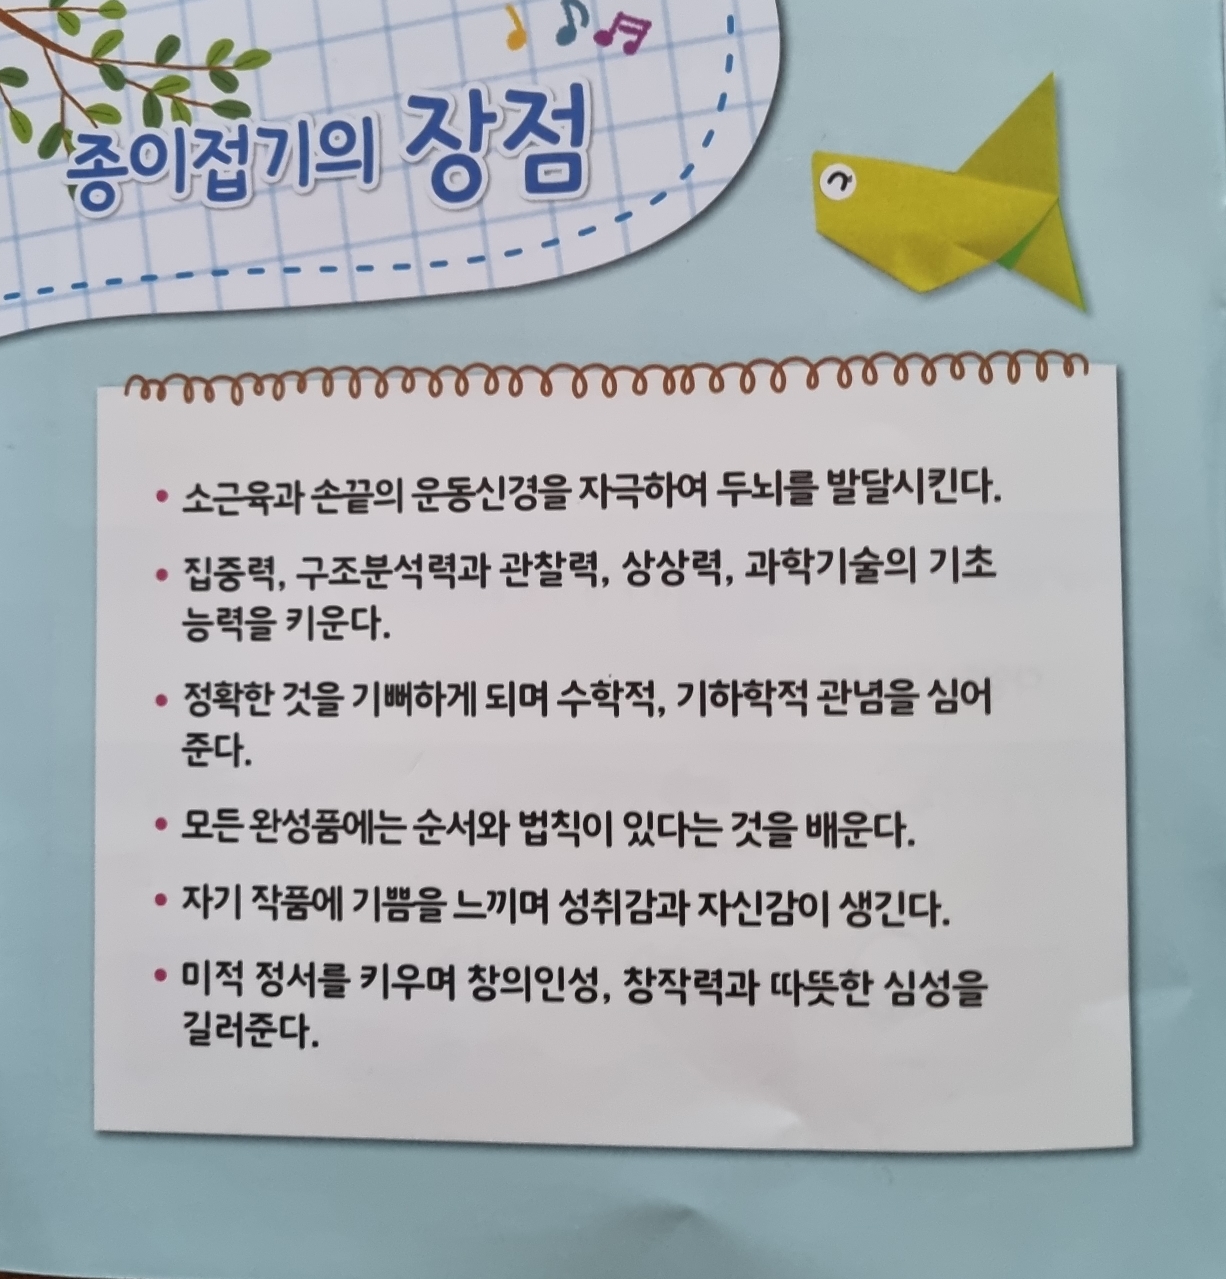 종이접기의 장점
• 소근육과 손끝의 운동신경을 자극하여 두뇌를 발달시킨다.
• 집중력, 구조분석력과 관찰력, 상상력, 과학기술의 기초
능력을 키운다.
• 정확한 것을 기뻐하게 되며 수학적, 기하학적 관념을 심어
준다.
• 모든 완성품에는 순서와 법칙이 있다는 것을 배운다.
• 자기 작품에 기쁨을 느끼며 성취감과 자신감이 생긴다.
• 미적 정서를 키우며 창의인성, 창작력과 따뜻한 심성을
길러준다.